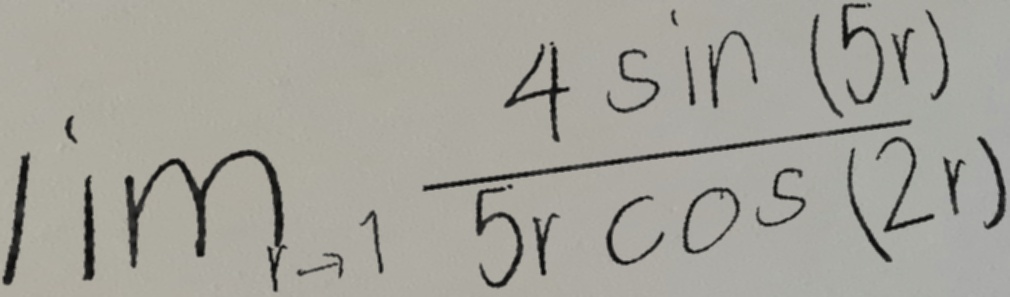 lim_{r→1} \frac{4 sin (5r)}{5r cos (2r)}